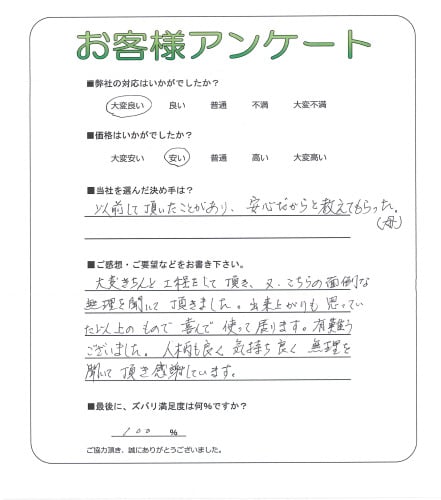 お客様アンケート
■弊社の対応はいかがでしたか？
大変良い 良い 普通 不満 大変不満
■価格はいかがでしたか？
大変安い 安い 普通 高い 大変高い
■当社を選んだ決め手は？
以前して頂いたことがあり、安心だからと教えてもらった。
(母)
■ご感想・ご要望などをお書き下さい。
大変きちんと工程をして頂き、又、こちらの面倒な
無理を聞いて頂きました。出来上がりも思ってい
た以上のもので喜んで使って居ります。有難う
ございました。人柄も良く気持ち良く無理を
聞いて頂き感謝しています。
■最後に、ズバリ満足度は何%ですか？
100 %
ご協力頂き、誠にありがとうございました。